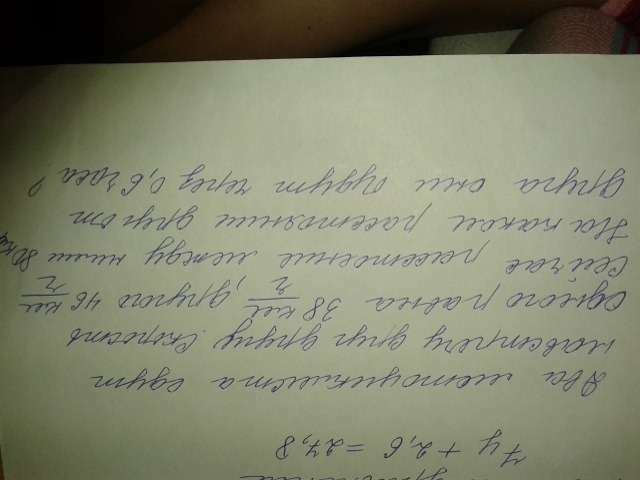 уравнение
7y + 2,6 = 27,8
Два мотоциклиста едут
навстречу друг другу. Скорость
одного равна 38 км/ч, другого 46 км/ч
Сейчас расстояние между ними 80 км
На каком расстоянии друг от
друга они будут через 0,6 часа?